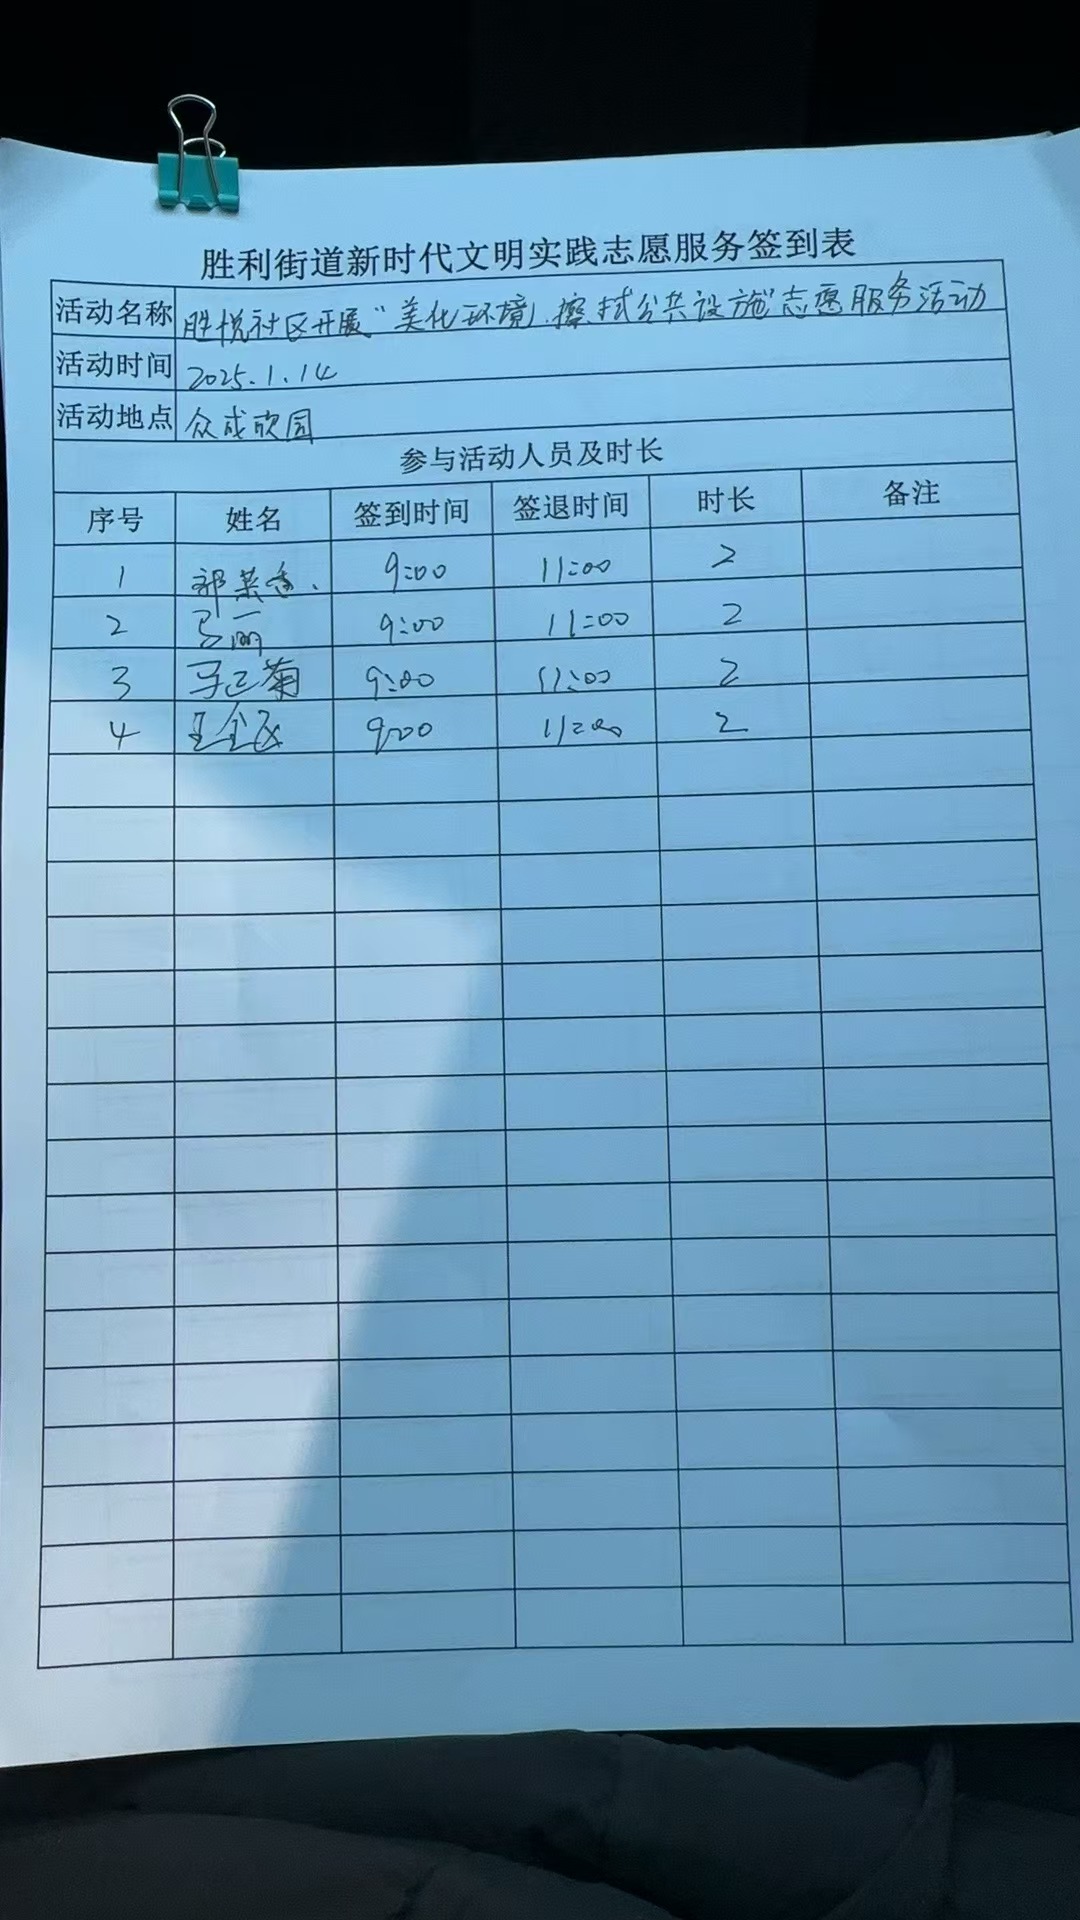 胜利街道新时代文明实践志愿服务签到表
活动名称 胜悦社区开展“美化环境、擦拭公共设施”志愿服务活动
活动时间 2025.1.14
活动地点 众成欣园
参与活动人员及时长
序号 姓名 签到时间 签退时间 时长 备注
1 9:00 11:00 2
2 马丽 9:00 11:00 2
3 马正菊 9:00 11:00 2
4 9:00 11:00 2